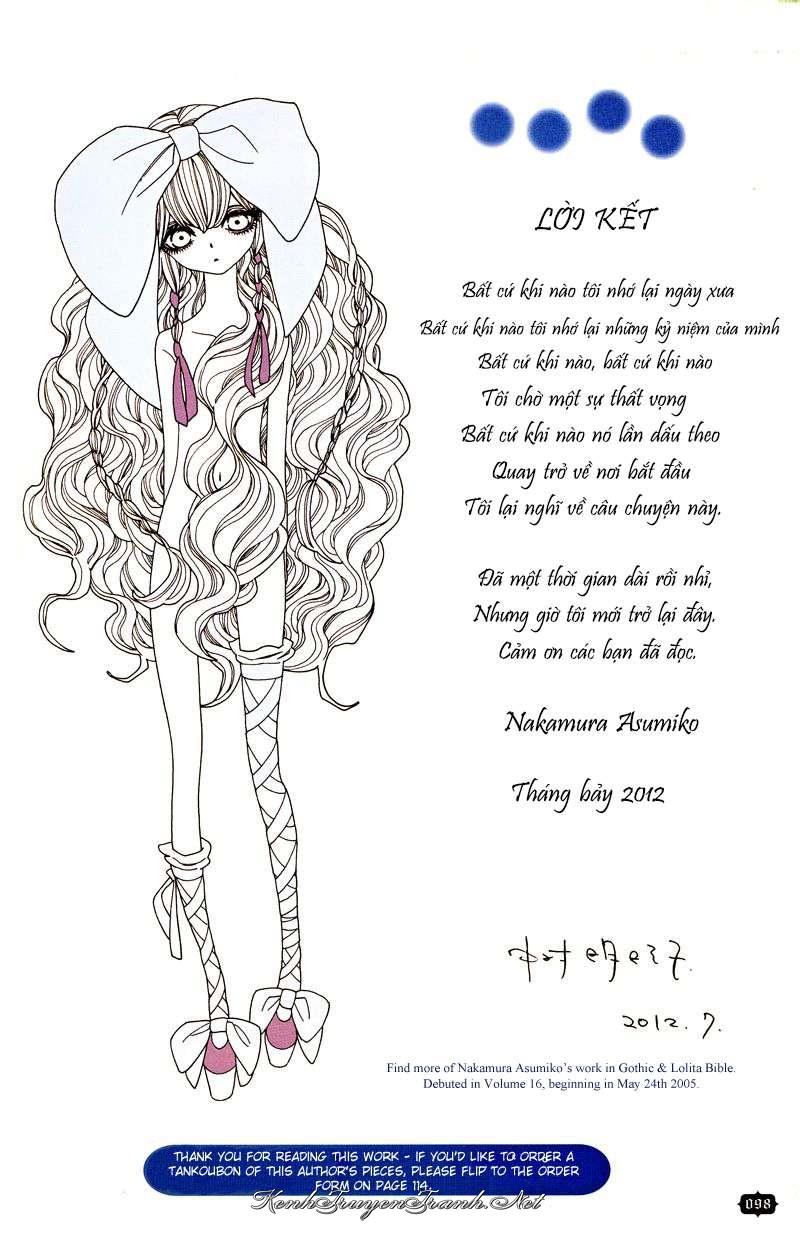 LỜI KẾT
Bất cứ khi nào tôi nhớ lại ngày xưa
Bất cứ khi nào tôi nhớ lại những kỷ niệm của mình
Bất cứ khi nào, bất cứ khi nào
Tôi chờ một sự thất vọng
Bất cứ khi nào nó lần dấu theo
Quay trở về nơi bắt đầu
Tôi lại nghĩ về câu chuyện này.
Đã một thời gian dài rồi nhỉ,
Nhưng giờ tôi mới trở lại đây.
Cảm ơn các bạn đã đọc.
Nakamura Asumiko
Tháng bảy 2012
中村明日美子.
2012. 7.
Find more of Nakamura Asumiko's work in Gothic & Lolita Bible.
Debuted in Volume 16, beginning in May 24th 2005.
THANK YOU FOR READING THIS WORK - IF YOU'D LIKE TO ORDER A
TANKOUBON OF THIS AUTHOR'S PIECES, PLEASE FLIP TO THE ORDER
FORM ON PAGE 114.
KenhTruyenTranh.Net
098